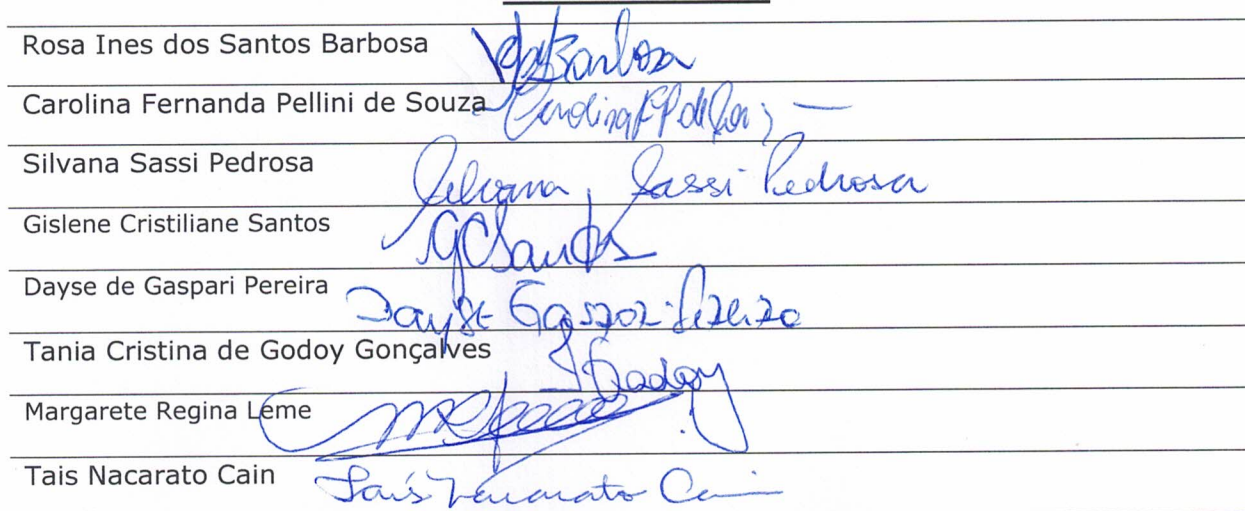 Rosa Ines dos Santos Barbosa Barbosa
Carolina Fernanda Pellini de Souza Carolina
Silvana Sassi Pedrosa Silvana Sassi Pedrosa
Gislene Cristiliane Santos GCSantos
Dayse de Gaspari Pereira Dayse Gaspari Pereira
Tania Cristina de Godoy Gonçalves TGodoy
Margarete Regina Leme
Tais Nacarato Cain Tais Nacarato Cain